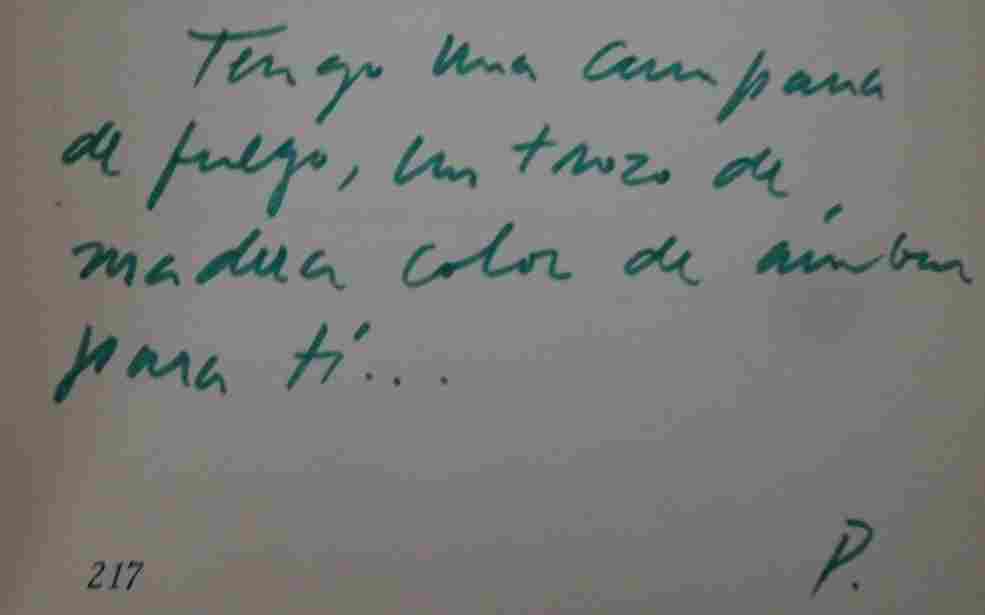 Tengo una campana
de fuego, un trozo de
madera color de ámbar
para tí...
P.
217